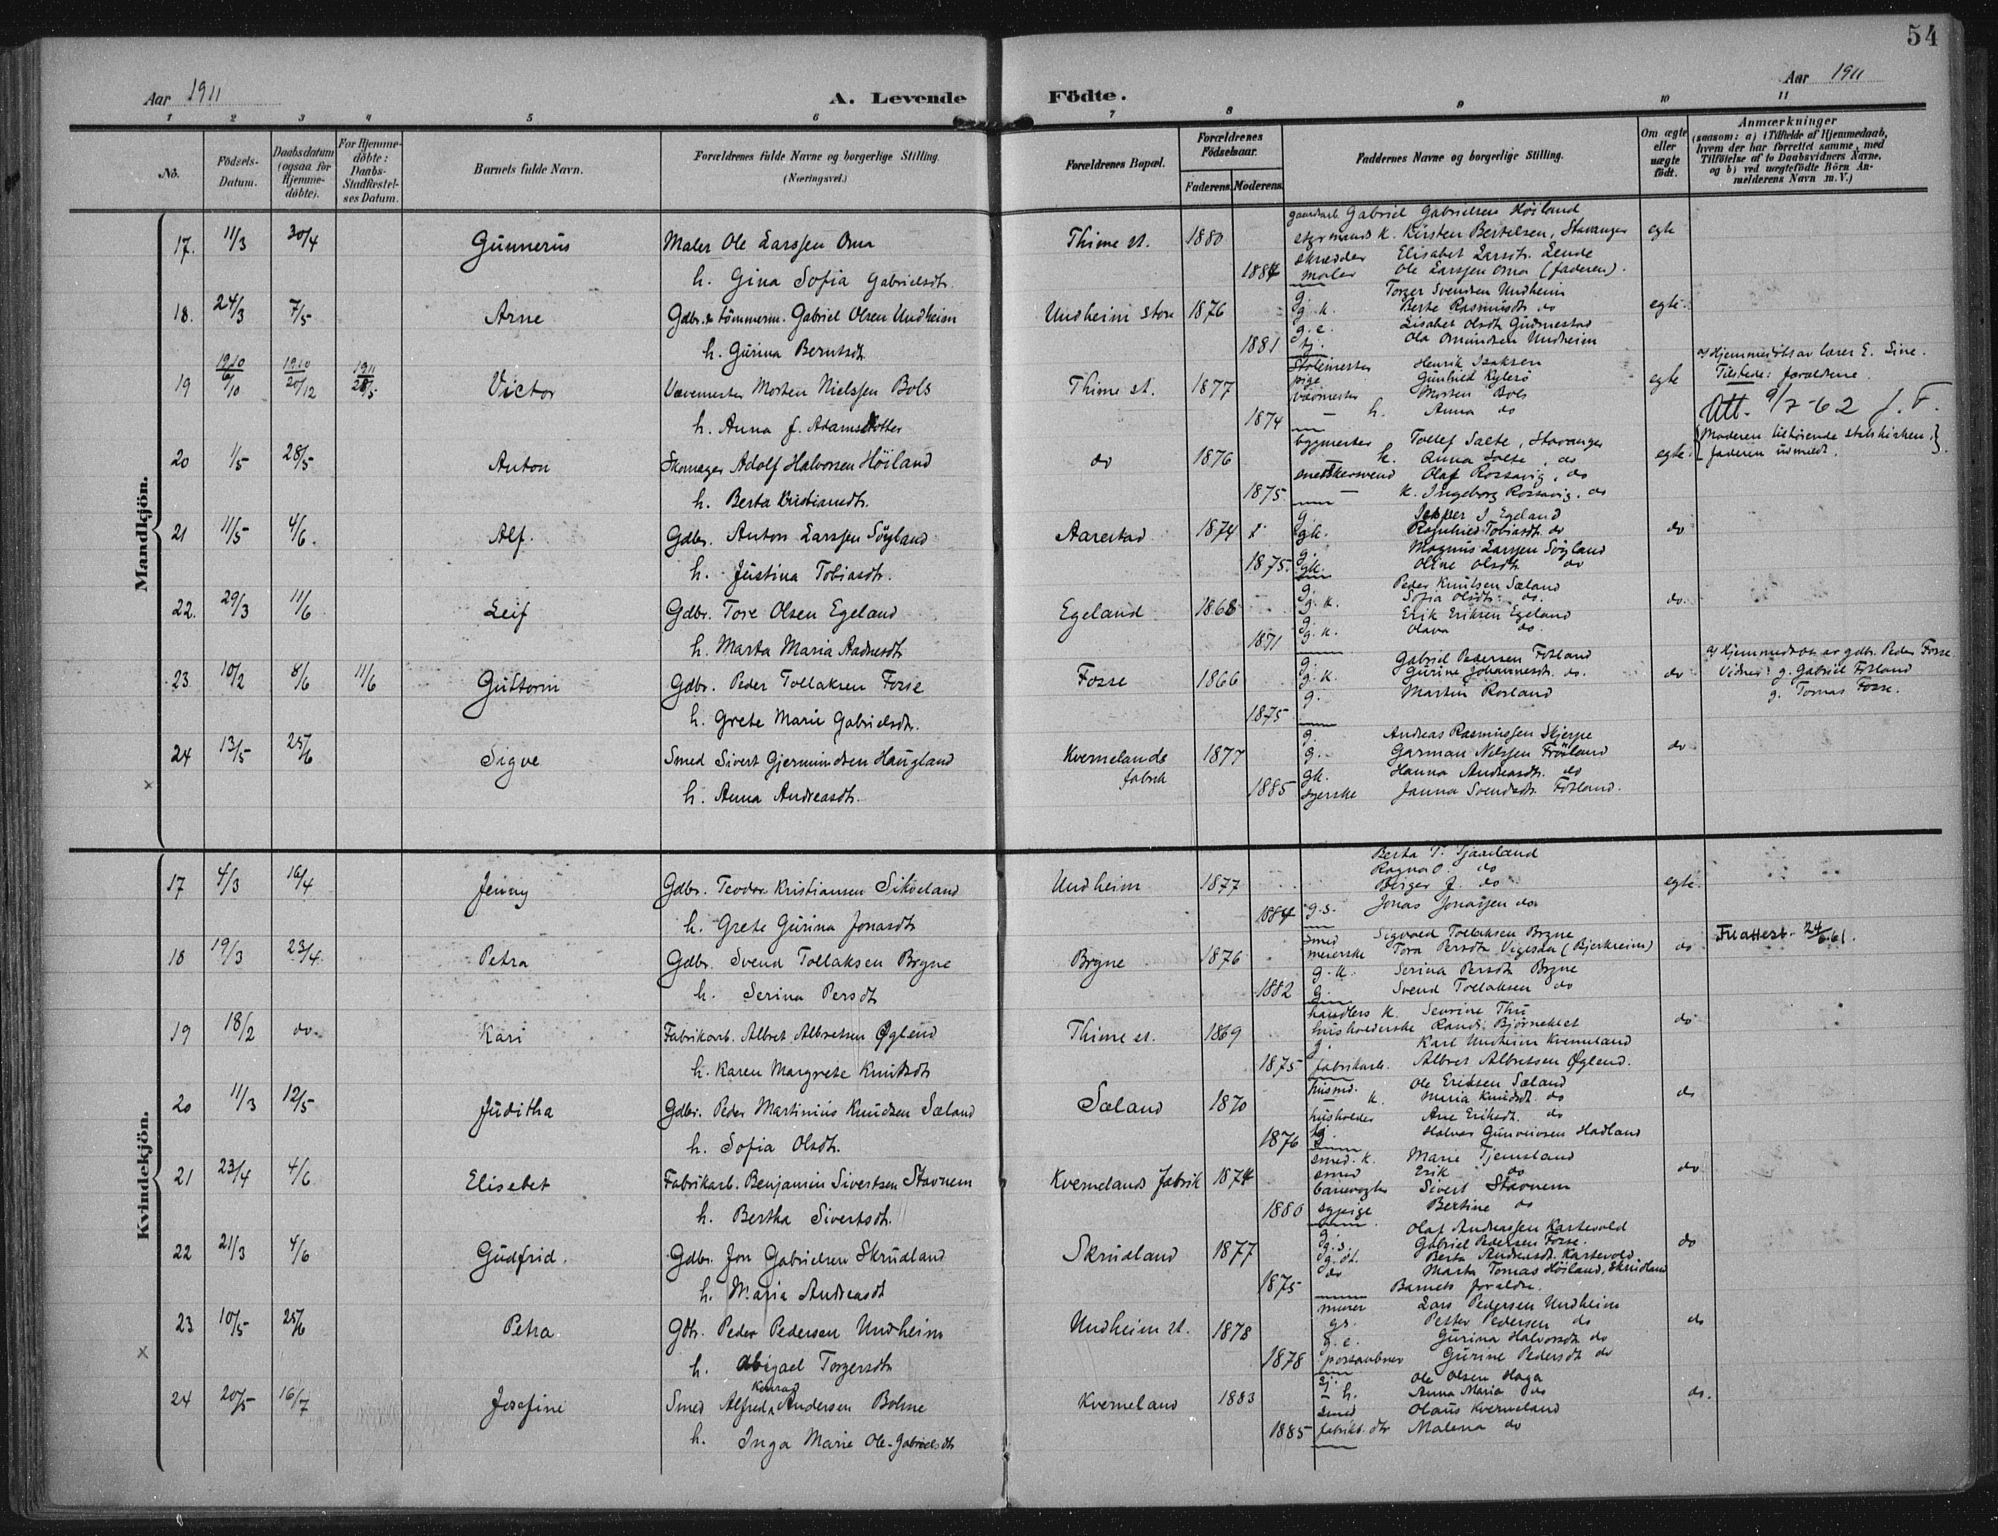 54
Aar 1911
A. Levende Födte.
Aar 1911
1 2 3 4 5 6 7 8 9 10 11
No.
Födsels-Datum.
Daabsdatum (ogsaa for Hjemme-döbte).
For Hjemme-döbte: Daabs-Stadfæstel-ses Datum.
Barnets fulde Navn.
Forældrenes fulde Navne og borgerlige Stilling.
(Næringsvei.)
Forældrenes Bopæl.
Forældrenes Födselsaar.
Faderens. Moderens.
Faddernes Navne og borgerlige Stilling.
Om ægte eller uægte födt.
Anmærkninger
(saasom: a) i Tilfælde af Hjemmedaab, hvem der har forrettet samme, med Tilföielse af to Daabsvidners Navne, og b) ved uægtefödte Börn Anmelderens Navn m. V.)
Mandkjön.
17. 11/3 30/4 Gunnerus Maler Ole Larssen Oma Thime st. 1880 egte
h. Gina Sofia Gabrielsdt. 1884
gaardarb. Gabriel Gabrielsen Höiland
styrmands k. Kirsten Bertelsen, Stavanger
skredder Elisabet Larsdt. Lende
maler Ole Larssen Oma (faderen).
18. 24/3 7/5 Arne Gdbr. & tömmerm. Gabriel Olsen Undheim Undheim store 1876 egte.
h. Gurina Berntsdt. 1881
g. Torger Svendsen Undheim
g. k. Berte Rasmusdt. do
g. e. Lisabet Olsdt. Gudmestad
tj. Ola Omundsen Undheim
19 1910 6/10 1910 20/12 1911 28/5 Victor Vævemester Morten Nielssen Bols Thime st. 1877 egte
h. Anna J. Adamsdotter 1874
stolemester Henrik Isaksen
pige Gunhild Kylesö
vævmester Morten Bols
— h. Anna do
a) Hjemmedøbt av lærer E. Line.
Tilstede: forældrene.
Att. 9/7-62 J. F.
20 1/5 28/5 Anton Skomager Adolf Halvorsen Höiland do 1876 egte.
h. Berta Kristiansdt. 1875.
bygmester Tollef Salte, Stavanger
k. Anna Salte, do
snekkersvend Olaf Rossavig, do
— k. Ingeborg Rossavig, do
{Moderen tilhørende statskirken,}
{faderen udmeldt.}
21 11/5 4/6. Alf. Gdbr. Anton Larssen Söyland Aarestad 1874 do
h. Justina Tobiasdt. 1875.
g. Jesper J Egeland
gk. Ragnhild Tobiasdt. do
g. Magnus Larssen Söyland
gk. Oline Olsdt. do
22. 29/3 11/6 Leif Gdbr. Tore Olsen Egeland Egeland 1868 do.
h. Marta Maria Aadnesdt. 1871
g. Peder Knutsen Sæland
g. k. Sofia Olsdt. do.
g. Erik Eriksen Egeland
g. k. Olava do
23. 10/2 8/6 11/6 Guttorm Gdbr. Peder Tollaksen Fosse Fosse 1866 do
h. Grete Marie Gabrielsdt. 1875
g. Gabriel Pedersen Fosland
g. k. Gurine Johannesdt. do.
g. Martin Rosland
a) Hjemmedøbt av gdbr. Peder Fosse.
Vidner: g. Gabriel Fosland
g. Tomas Fosse.
24 13/5 25/6 Sigve Smed Sivert Gjermundsen Haugland Kvernelands fabrik 1877 do
h. Anna Andreasdt. 1885
g. Andreas Rasmussen Skjerpe
g. Garman Nilssen Fröiland
gk. Hanna Andreasdt. do
syerske Janna Svendsdt. Fosland.
Kvindekjön.
17 4/3 16/4 Jenny Gdbr. Teodor Kristiansen Sikveland Undheim 1877 egte.
h. Grete Gurina Jonasdt. 1884
Berta T. Tjaaland
Ragna O do
Berger J. do
g. s. Jonas Jonassen do
18 19/3 23/4 Petra Gdbr. Svend Tollaksen Bryne Bryne 1876 do
h. Serina Persdt 1882
smed Sigvald Tollaksen Bryne
meierske Tora Persdt. Vigesaa (Bjerkreim)
g. k. Serina Persdt. Bryne
g. Svend Tollaksen do
Fr.attest 24/6.61.
19 18/2 do Kari Fabrikarb. Albret Albretsen Øglend Thime st. 1869 do
h. Karen Margrete Knutsdt 1875
handlers k. Severine Thu
husholderske Randi Bjørneklet
g. Karl Undheim Kverneland
fabrikarb. Albret Albretsen Øglend.
20 11/3 12/5 Juditha Gdbr. Peder Martinius Knudsen Sæland Sæland 1870 do
h. Sofia Olsdt. 1876
husmd. Ole Eriksen Sæland
— k. Maria Knudsdt do
husholder Ane Eriksdt. do
Halvor Gunvorsen Hadland
21 23/4 4/6 Elisebet Fabrikarb. Benjamin Sivertsen Stavnem Kvernelands fabrik 1874 do
h. Bertha Sivertsdt. 1880
smed. k. Marie Tjemsland
smed Erik do
banevogter Sivert Stavnem
sypige Bertine do
22 21/3 4/6 Gudfrid. Gdbr. Jon Gabrielsen Skrudland Skrudland 1877 do
h. Maria Andreasdt 1875
Olaf Andreassen Kartevold
g. s. Gabriel Pedersen Fosse.
g. dt. Berta Andreasdt. Kartevold.
do Marta Tomas Höiland, Skrudland
Barnets forældre.
23 10/5 25/6 Petra. Gdbr. Peder Pedersen Undheim Undheim st. 1878 do
h. Abigael Torgersdt 1878
murer Lars Pedersen Undheim
gs. Petter Pedersen do
g. e. Gurina Halvorsdt do
postaabner Gurine Pedersdt do
24 20/5 16/7 Josefine Smed Alfred Konrad Andersen Bohne Kverneland 1883 do.
h. Inga Marie Ole-Gabrielsdt 1885
Ole Olsen Haga
— h. Anna Maria do
smed Olaus Kverneland
fabrikb. dtr Malena do